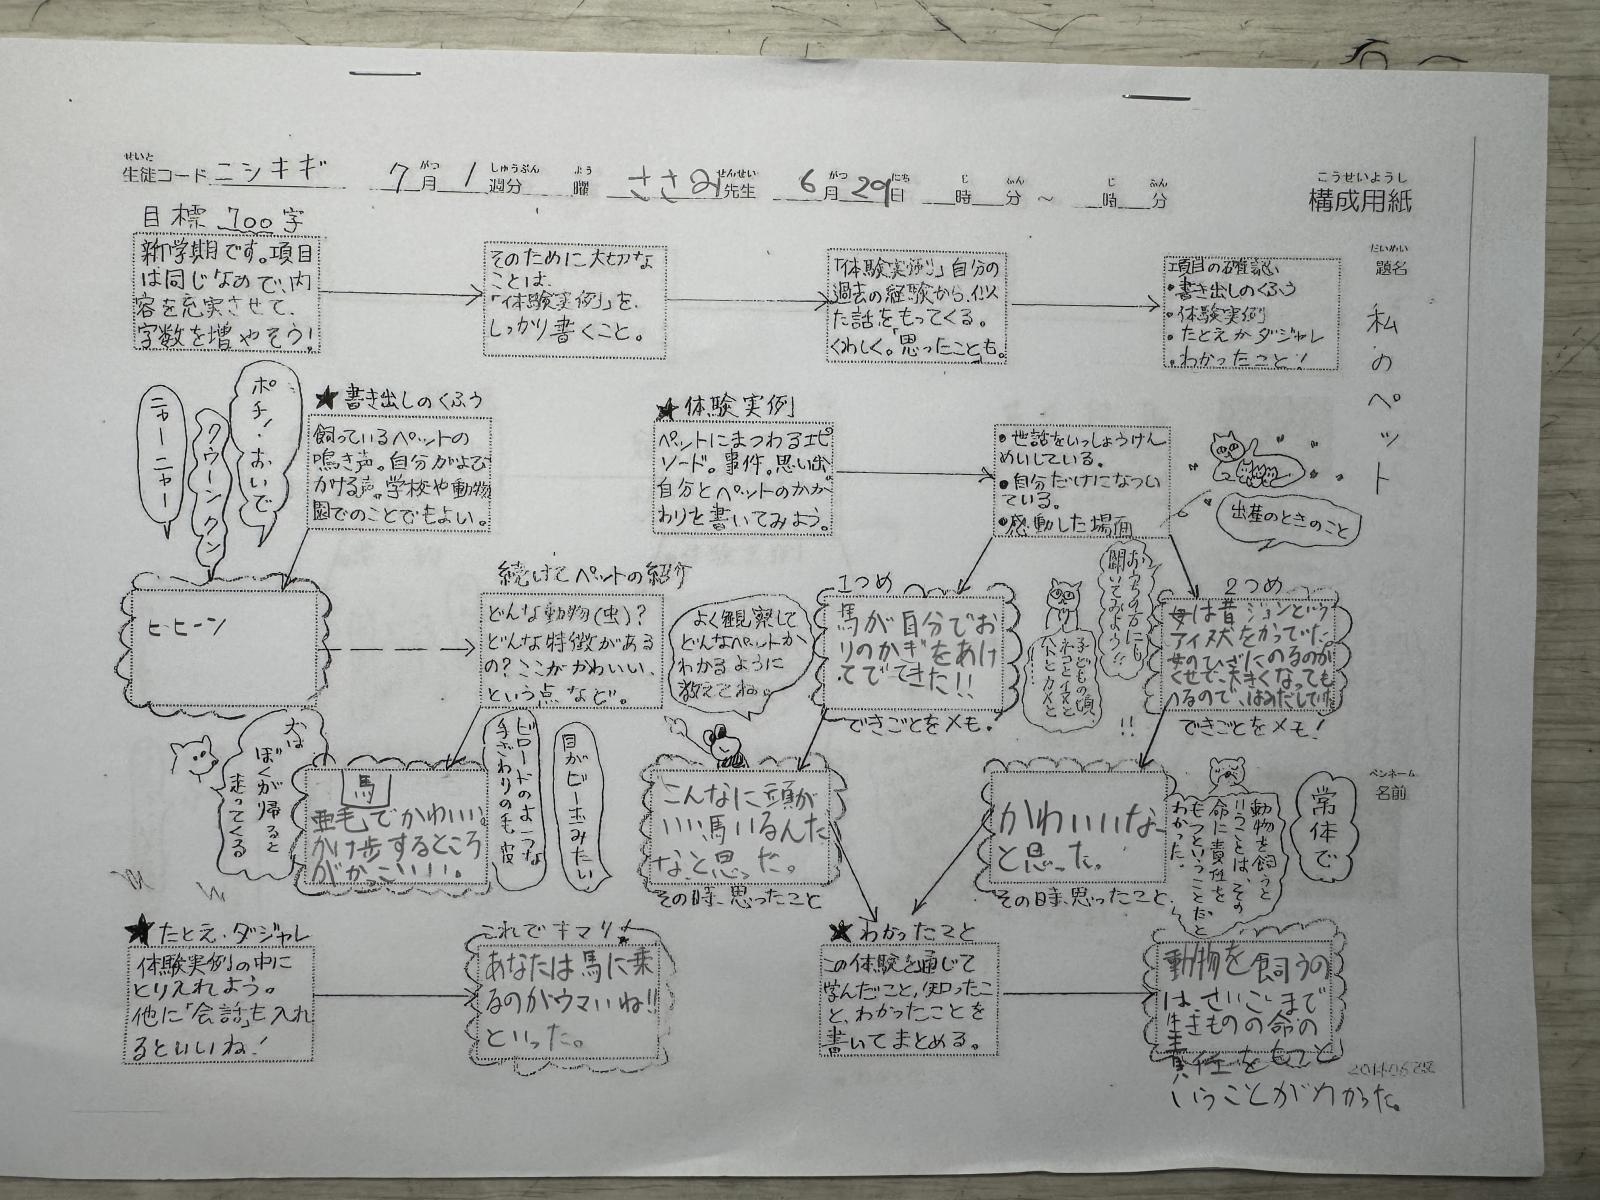 せいと
生徒コード ニシキギ 7月 1週分 曜 ささみ先生 6月29日 時 分 ～ 時 分
がつ しゅうぶん よう せんせい がつ にち じ ふん じ ふん
こうせいようし
構成用紙
だいめい
題名
私のペット
ペンネーム
名前
目標 700字
新学期です。項目
は同じなので、内
容を充実させて、
字数を増やそう!
そのために大切な
ことは、
「体験実例」を、
しっかり書くこと。
「体験実例」自分の
過去の経験から、似
た話をもってくる。
くわしく。「思ったこと」も。
項目の確認
・書き出しのくふう
・体験実例
・たとえかダジャレ
・わかったこと!
ポチ!おいで
クウーンクン
ニャーニャー
★書き出しのくふう
飼っているペットの
鳴き声。自分がよび
かける声。学校や動物
園でのことでもよい。
★体験実例
ペットにまつわるエピ
ソード。事件。思い出
自分とペットのかか
わりを書いてみよう。
・世話をいっしょうけん
めいしている。
・自分だけになつい
ている。
・感動した場面
出産のときのこと
ヒヒーン
続けてペットの紹介
どんな動物(虫)?
どんな特徴がある
の?ここがかわいい、
という点など。
よく観察して
どんなペットか
わかるように
教えてね。
1つめ
馬が自分でお
りのかぎをあけ
てでてきた!!
できごとをメモ!
おうちの方にも
聞いてみよう!!
子どもの頃
ネコとイヌと
!!
2つめ
母は昔ジョンという
アイヌ犬をかっていた。
母のひざにのるのが
くせで、大きくなっても
のるので、はみだしていた
できごとをメモ!
犬は
ぼくが帰ると
走ってくる
馬
亜毛でかわいい。
かけ歩するところ
がかっこいい。
ビロードのような
手ざわりの毛皮
目がビー玉みたい
こんなに頭が
いい馬いるんだ
なと思った。
その時、思ったこと
かわいいな
と思った。
その時、思ったこと
動物を飼うと
いうことは、その
命に責任を
もつということだと
わかった。
常体で
★たとえ・ダジャレ
体験実例の中に
とり入れよう。
他に「会話」も入れ
るといいね!
これでキマリ!
あなたは馬に乗
るのがウマいね!!
といった。
★わかったこと
この体験を通じて
学んだこと、知ったこ
と、わかったことを
書いてまとめる。
動物を飼うの
は、さいごまで
生きものの命の
責任をもつと
いうことがわかった。